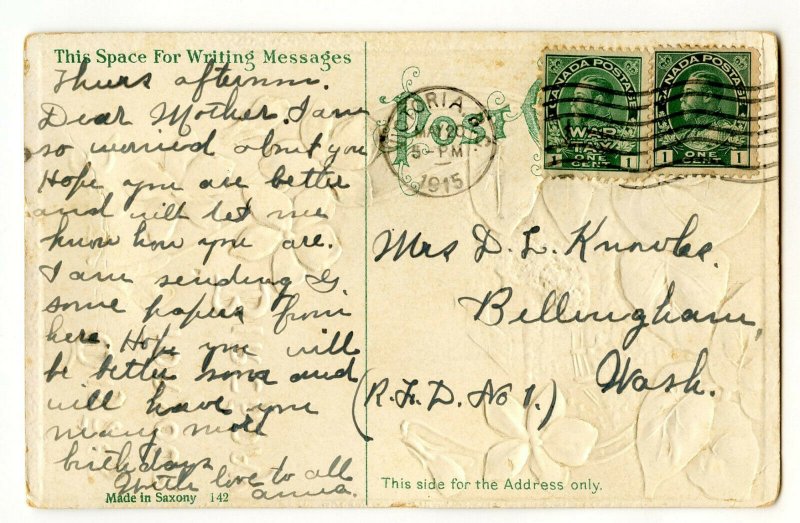 This Space For Writing Messages
Thurs afternoon.
Dear Mother. I am
so worried about you
Hope you are better
and will let me
know how you are.
I am sending G.
some papers from
here. Hope you will
be better soon and
will have you
many more
birthdays
With love to all
anna.
Made in Saxony 142
POST
VICTORIA B.C.
MAY 20
5 - PM
1915
CANADA POSTAGE
WAR
TAX
ONE CENT
1 1
CANADA POSTAGE
ONE CENT
1 1
Mrs D. L. Knowles.
Bellingham,
Wash.
(R.F.D. No 1.)
This side for the Address only.